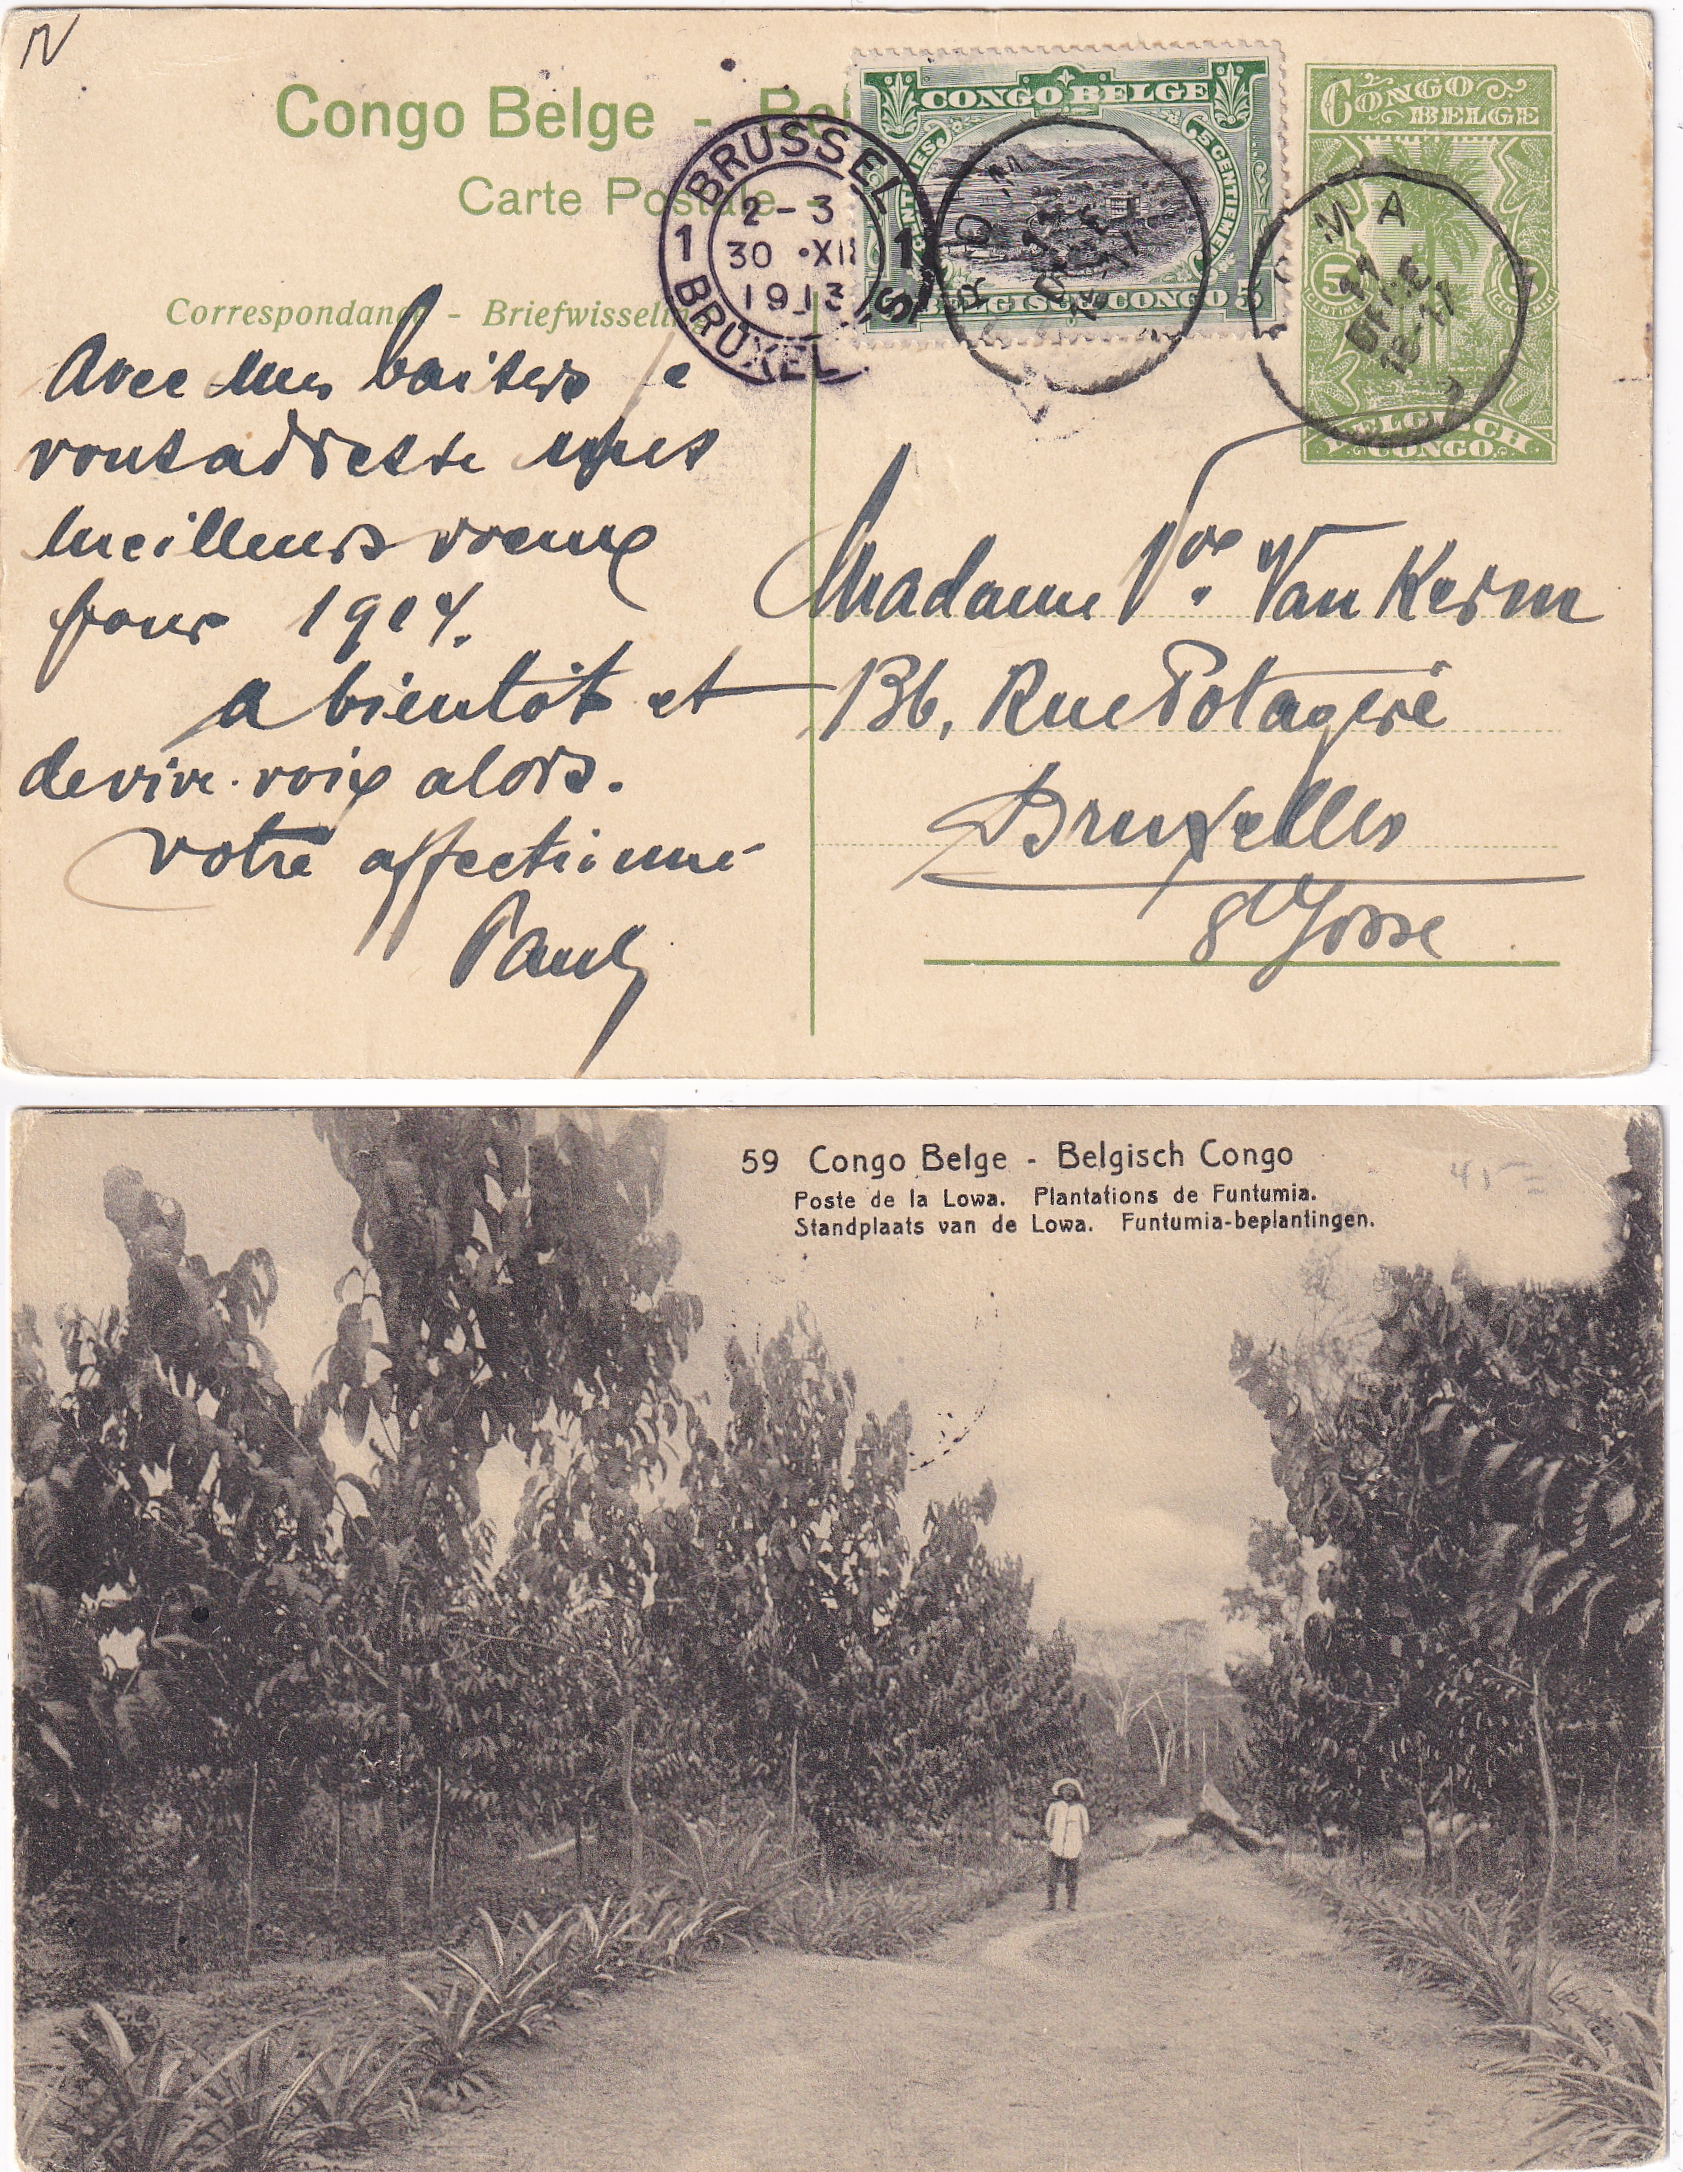 Congo Belge - Bel
Carte Postale -
Correspondance - Briefwisseling
Avec mes baisers je
vous adresse mes
meilleurs voeux
pour 1914.
a bientôt et
de vive voix alors.
Votre affectionné
Paul
BRUSSEL
2-3
30 XII
1913
1 1
BRUXEL S
CONGO BELGE
5 CENTIMES
BELGISCH CONGO 5
BOMA
CONGO
BELGE
5 5
CENTIMES
BELGISCH
CONGO
BOMA
Madame Vve Van Kerm
136, Rue Potagère
Bruxelles
St Josse
59 Congo Belge - Belgisch Congo
Poste de la Lowa. Plantations de Funtumia.
Standplaats van de Lowa. Funtumia-beplantingen.